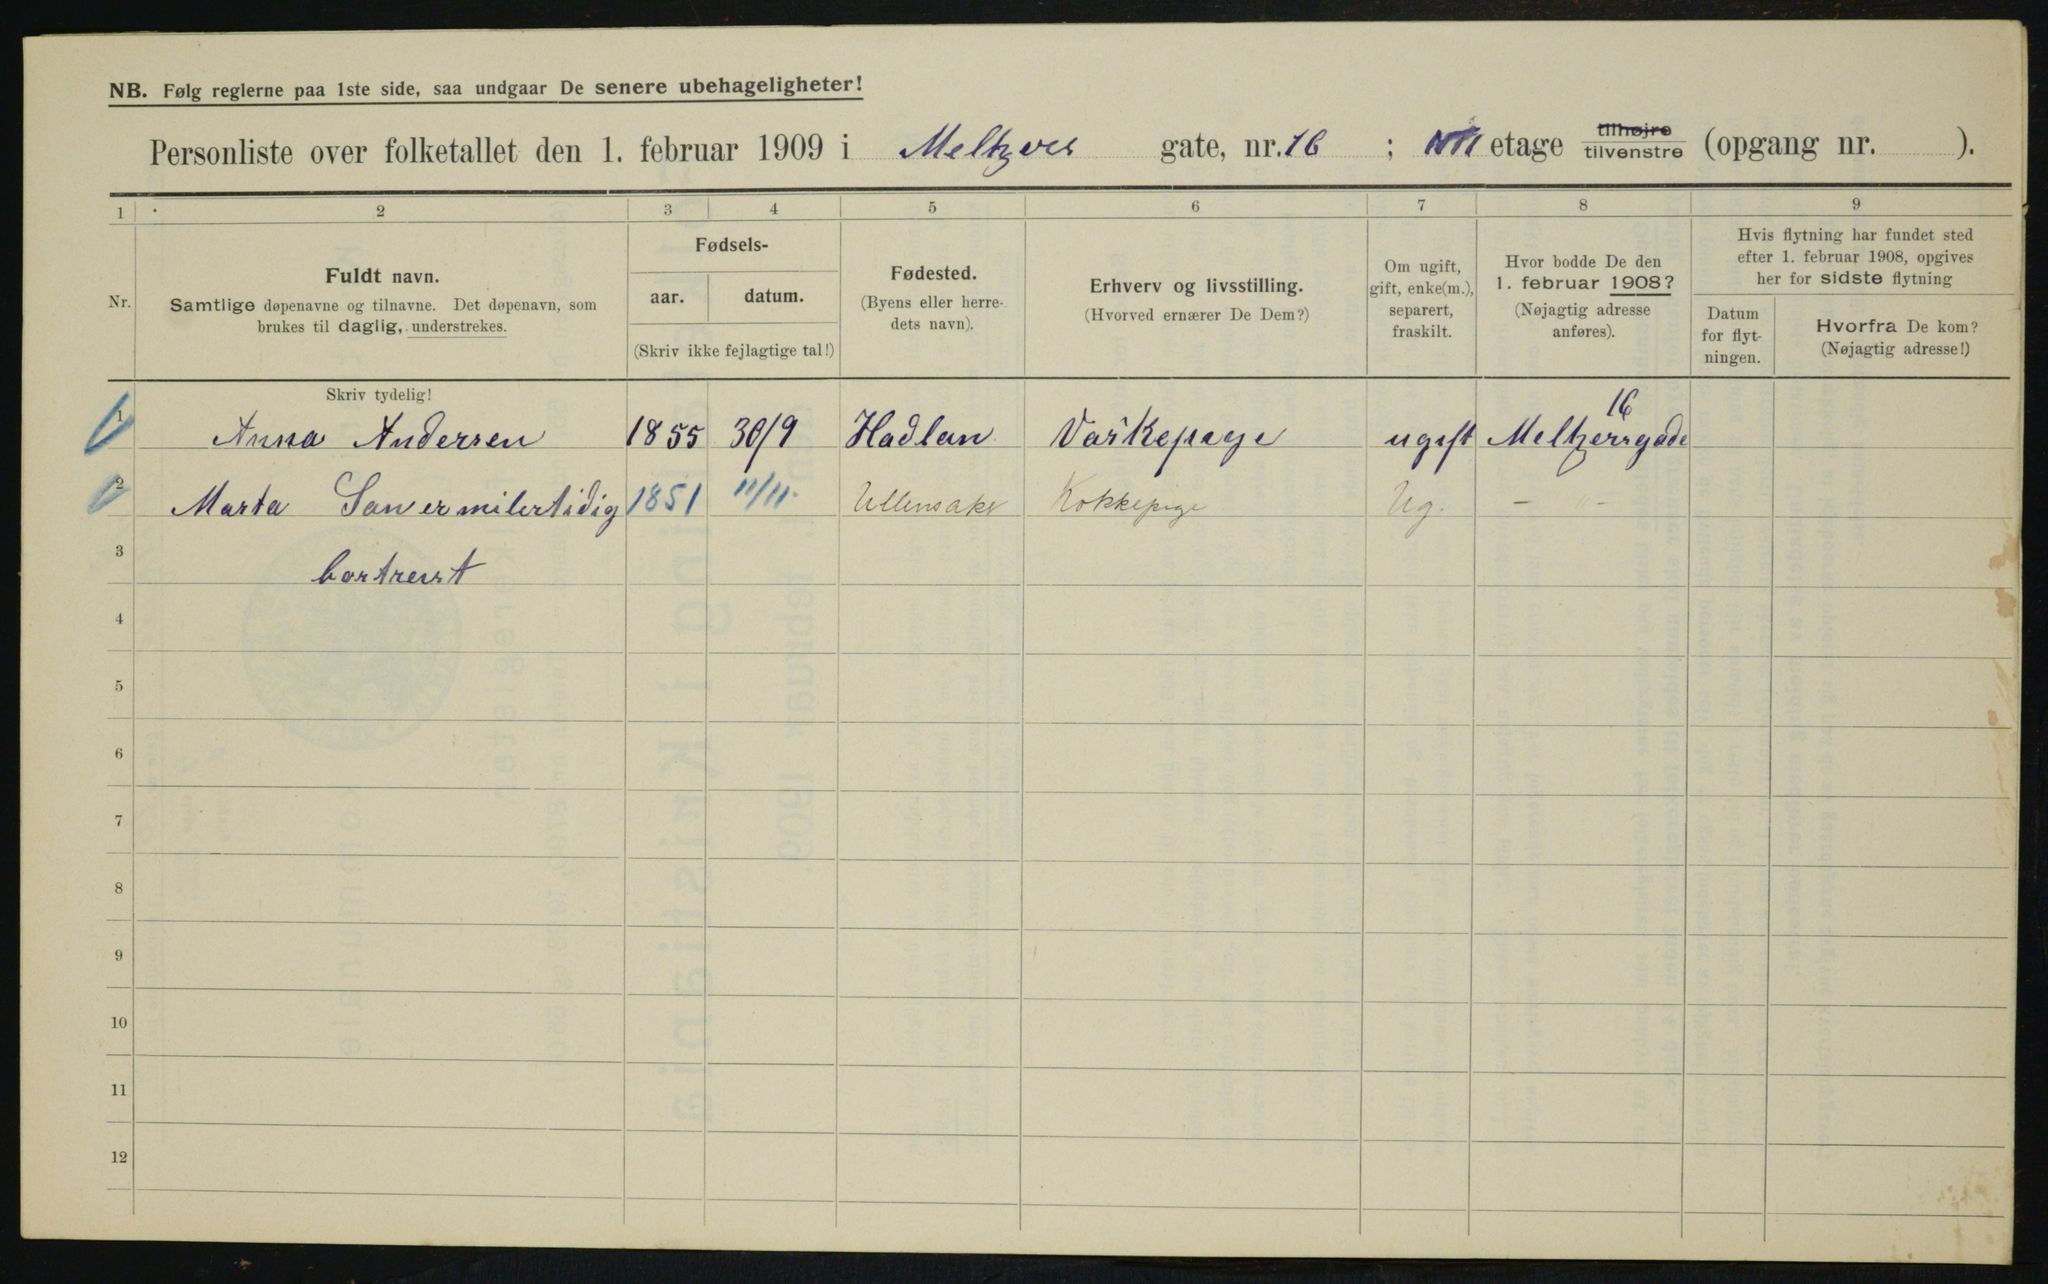 NB. Følg reglerne paa 1ste side, saa undgaar De senere ubehageligheter!
Personliste over folketallet den 1. februar 1909 i Meltzers gate, nr. 16 ; etage tilhøjre tilvenstre (opgang nr. ).
1 2 3 4 5 6 7 8 9
Nr.
Fuldt navn.
Samtlige døpenavne og tilnavne. Det døpenavn, som
brukes til daglig, understrekes.
Fødsels-
aar. datum.
(Skriv ikke fejlagtige tal!)
Fødested.
(Byens eller herre-
dets navn).
Erhverv og livsstilling.
(Hvorved ernærer De Dem?)
Om ugift,
gift, enke(m.),
separert,
fraskilt.
Hvor bodde De den
1. februar 1908?
(Nøjagtig adresse
anføres).
Hvis flytning har fundet sted
efter 1. februar 1908, opgives
her for sidste flytning
Datum
for flyt-
ningen.
Hvorfra De kom?
(Nøjagtig adresse!)
Skriv tydelig!
1 Anna Andersen 1855 30/9 Hadlan Vaskepege ugift Meltzersgade 16
2 Marta San er milertidig 1851 11/11. Ullensaker Kokkepige Ug. — " —
3 bortreist
4
5
6
7
8
9
10
11
12